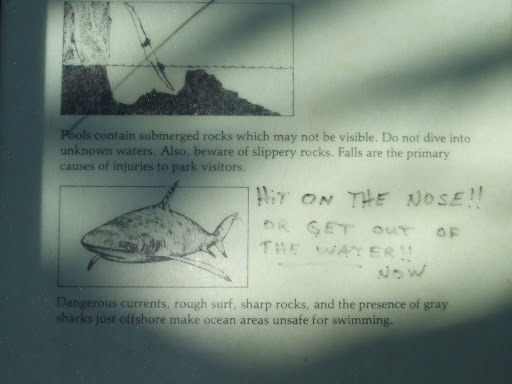 Pools contain submerged rocks which may not be visible. Do not dive into
unknown waters. Also, beware of slippery rocks. Falls are the primary
causes of injuries to park visitors.
HIT ON THE NOSE!!
OR GET OUT OF
THE WATER!!
NOW
Dangerous currents, rough surf, sharp rocks, and the presence of gray
sharks just offshore make ocean areas unsafe for swimming.